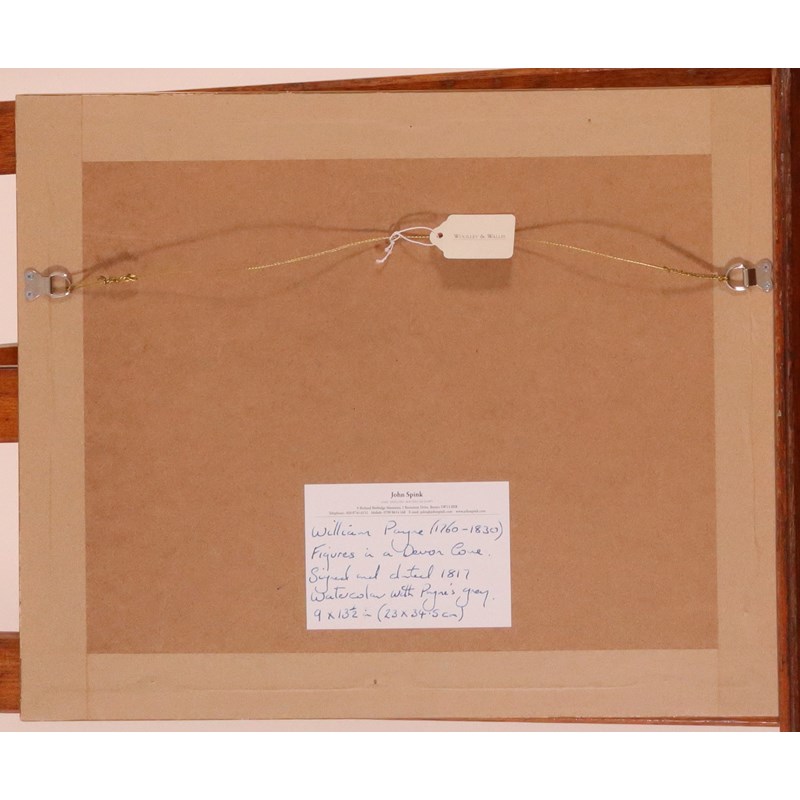 WOOLLEY & WALLIS
John Spink
William Payne (1760-1830)
Figures in a Devon Cove.
Signed and dated 1817
Watercolour with Payne's grey.
9 x 13½ in (23 x 34.5 cm)